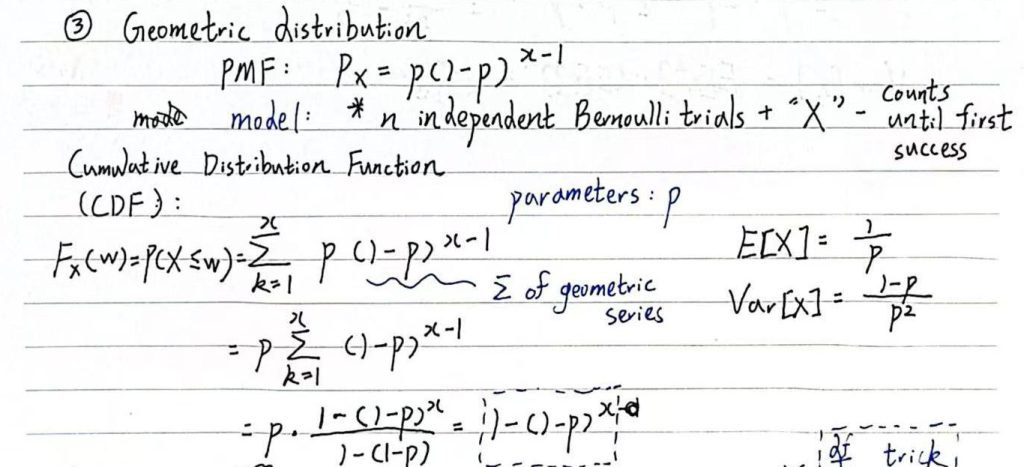 ③ Geometric distribution
PMF: Pₓ = p(1-p)^(x-1)
model: * n independent Bernoulli trials + "X" - counts until first success
Cumulative Distribution Function
(CDF): parameters: p
Fₓ(w)=P(X≤w)=∑_{k=1}^{x} p (1-p)^(x-1) E[X] = 1/p
∑ of geometric series Var[X] = (1-p)/p²
= p ∑_{k=1}^{x} (1-p)^(x-1)
= p · (1-(1-p)^x)/(1-(1-p)) = 1-(1-p)^x
trick